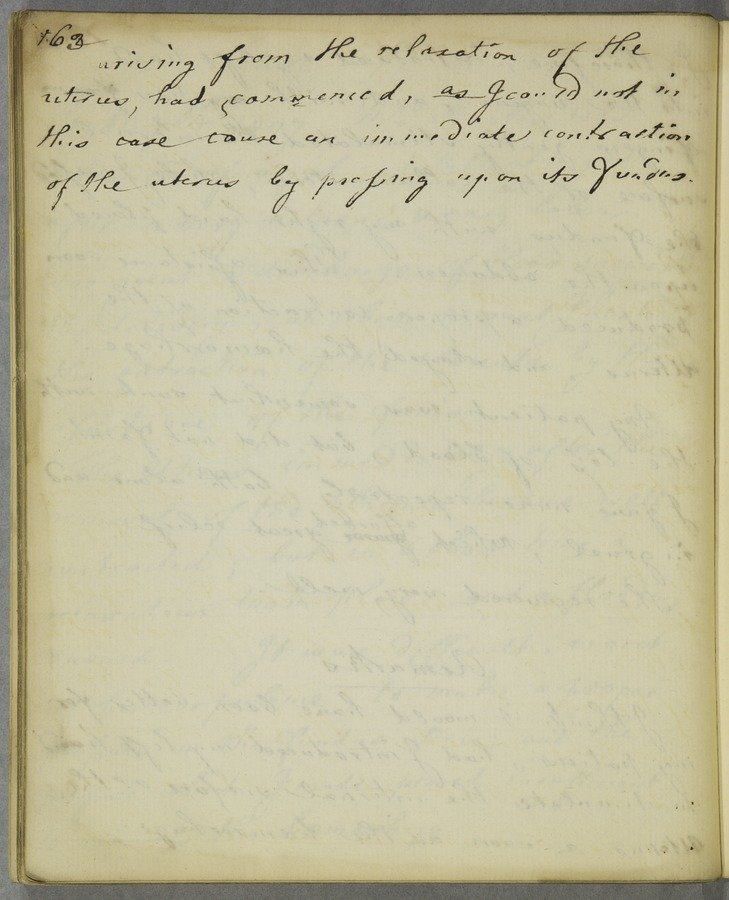 163
arising from the relaxation of the
uterus, had commenced, as I could not in
this case cause an immediate contraction
of the uterus by pressing upon its Fundus.